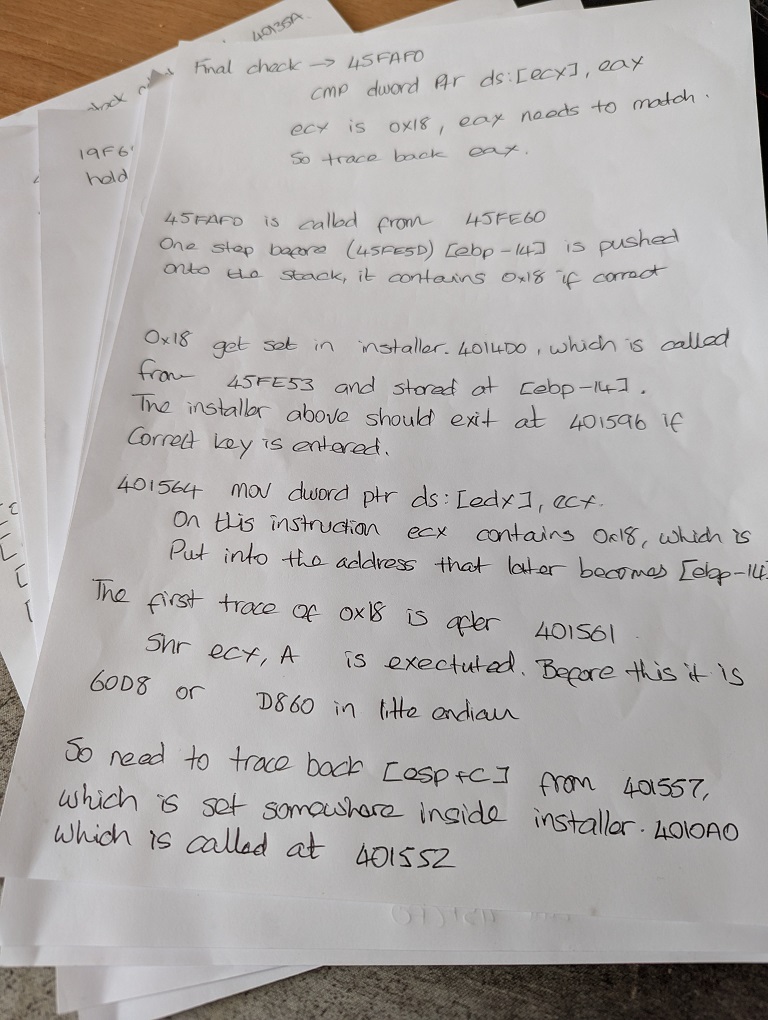 40135A
Final check → 45FAF0
cmp dword Ptr ds:[ecx], eax
ecx is 0x18, eax needs to match.
So trace back eax.
19F6
hold
45FAF0 is called from 45FE60
One step before (45FE5D) [ebp-14] is pushed
onto the stack, it contains 0x18 if correct
0x18 get set in installer.4014D0, which is called
from 45FE53 and stored at [ebp-14].
The installer above should exit at 401596 if
Correct key is entered.
401564 mov dword ptr ds:[edx], ecx.
On this instruction ecx contains 0x18, which is
Put into the address that later becomes [ebp-14]
The first trace of 0x18 is after 401561
Shr ecx, A is exectuted. Before this it is
60D8 or D860 in litte endian
So need to trace back [esp+C] from 401557,
which is set somewhere inside installer.4010A0
which is called at 401552